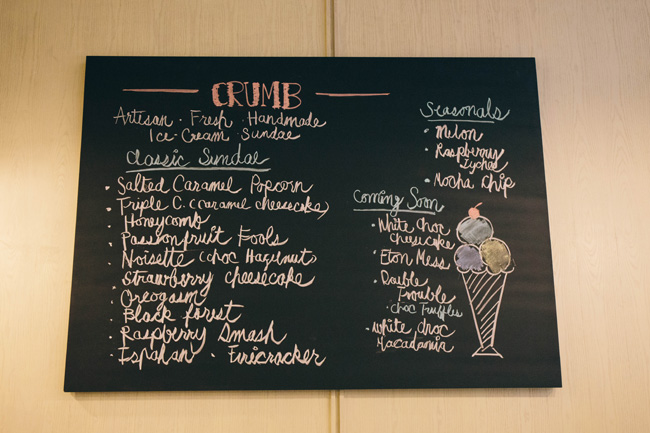 CRUMB
Artisan · Fresh · Handmade
Ice-Cream Sundae
Classic Sundae
· Salted Caramel Popcorn
· Triple C. (caramel cheesecake)
· Honeycomb
· Passionfruit Fools
· Noisette (choc Hazelnut)
· Strawberry cheesecake
· Oreogasm
· Black forest
· Raspberry Smash
· Ispahan · Firecracker
Seasonals
· Melon
· Raspberry
Lychee
· Mocha Chip
Coming Soon
· White Choc
Cheesecake
· Eton Mess
· Double
Trouble
· Choc Truffles
· white choc
Macadamia